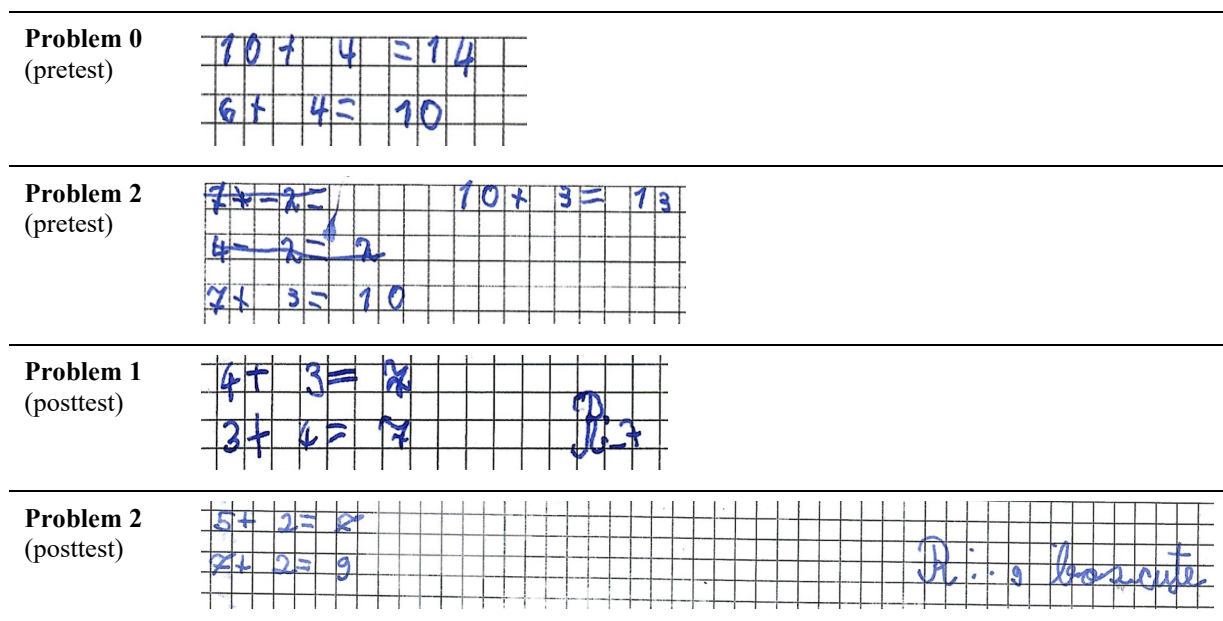 Problem 0
(pretest)
10 + 4 = 14
6 + 4 = 10
Problem 2
(pretest)
7+-2= 10 + 3 = 13
4- 2= 2
7+ 3= 10
Problem 1
(posttest)
4+ 3= 7
3+ 4= 7 R:7
Problem 2
(posttest)
5+ 2=
7+ 2= 9 R: 9